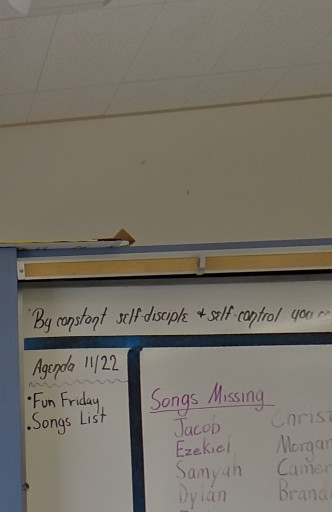 "By constant self-disciple + self-control you
Agenda 11/22
• Fun Friday
• Songs List
Songs Missing
Jacob
Ezekiel
Samyah
Dylan
Christ
Morgan
Camer
Brand